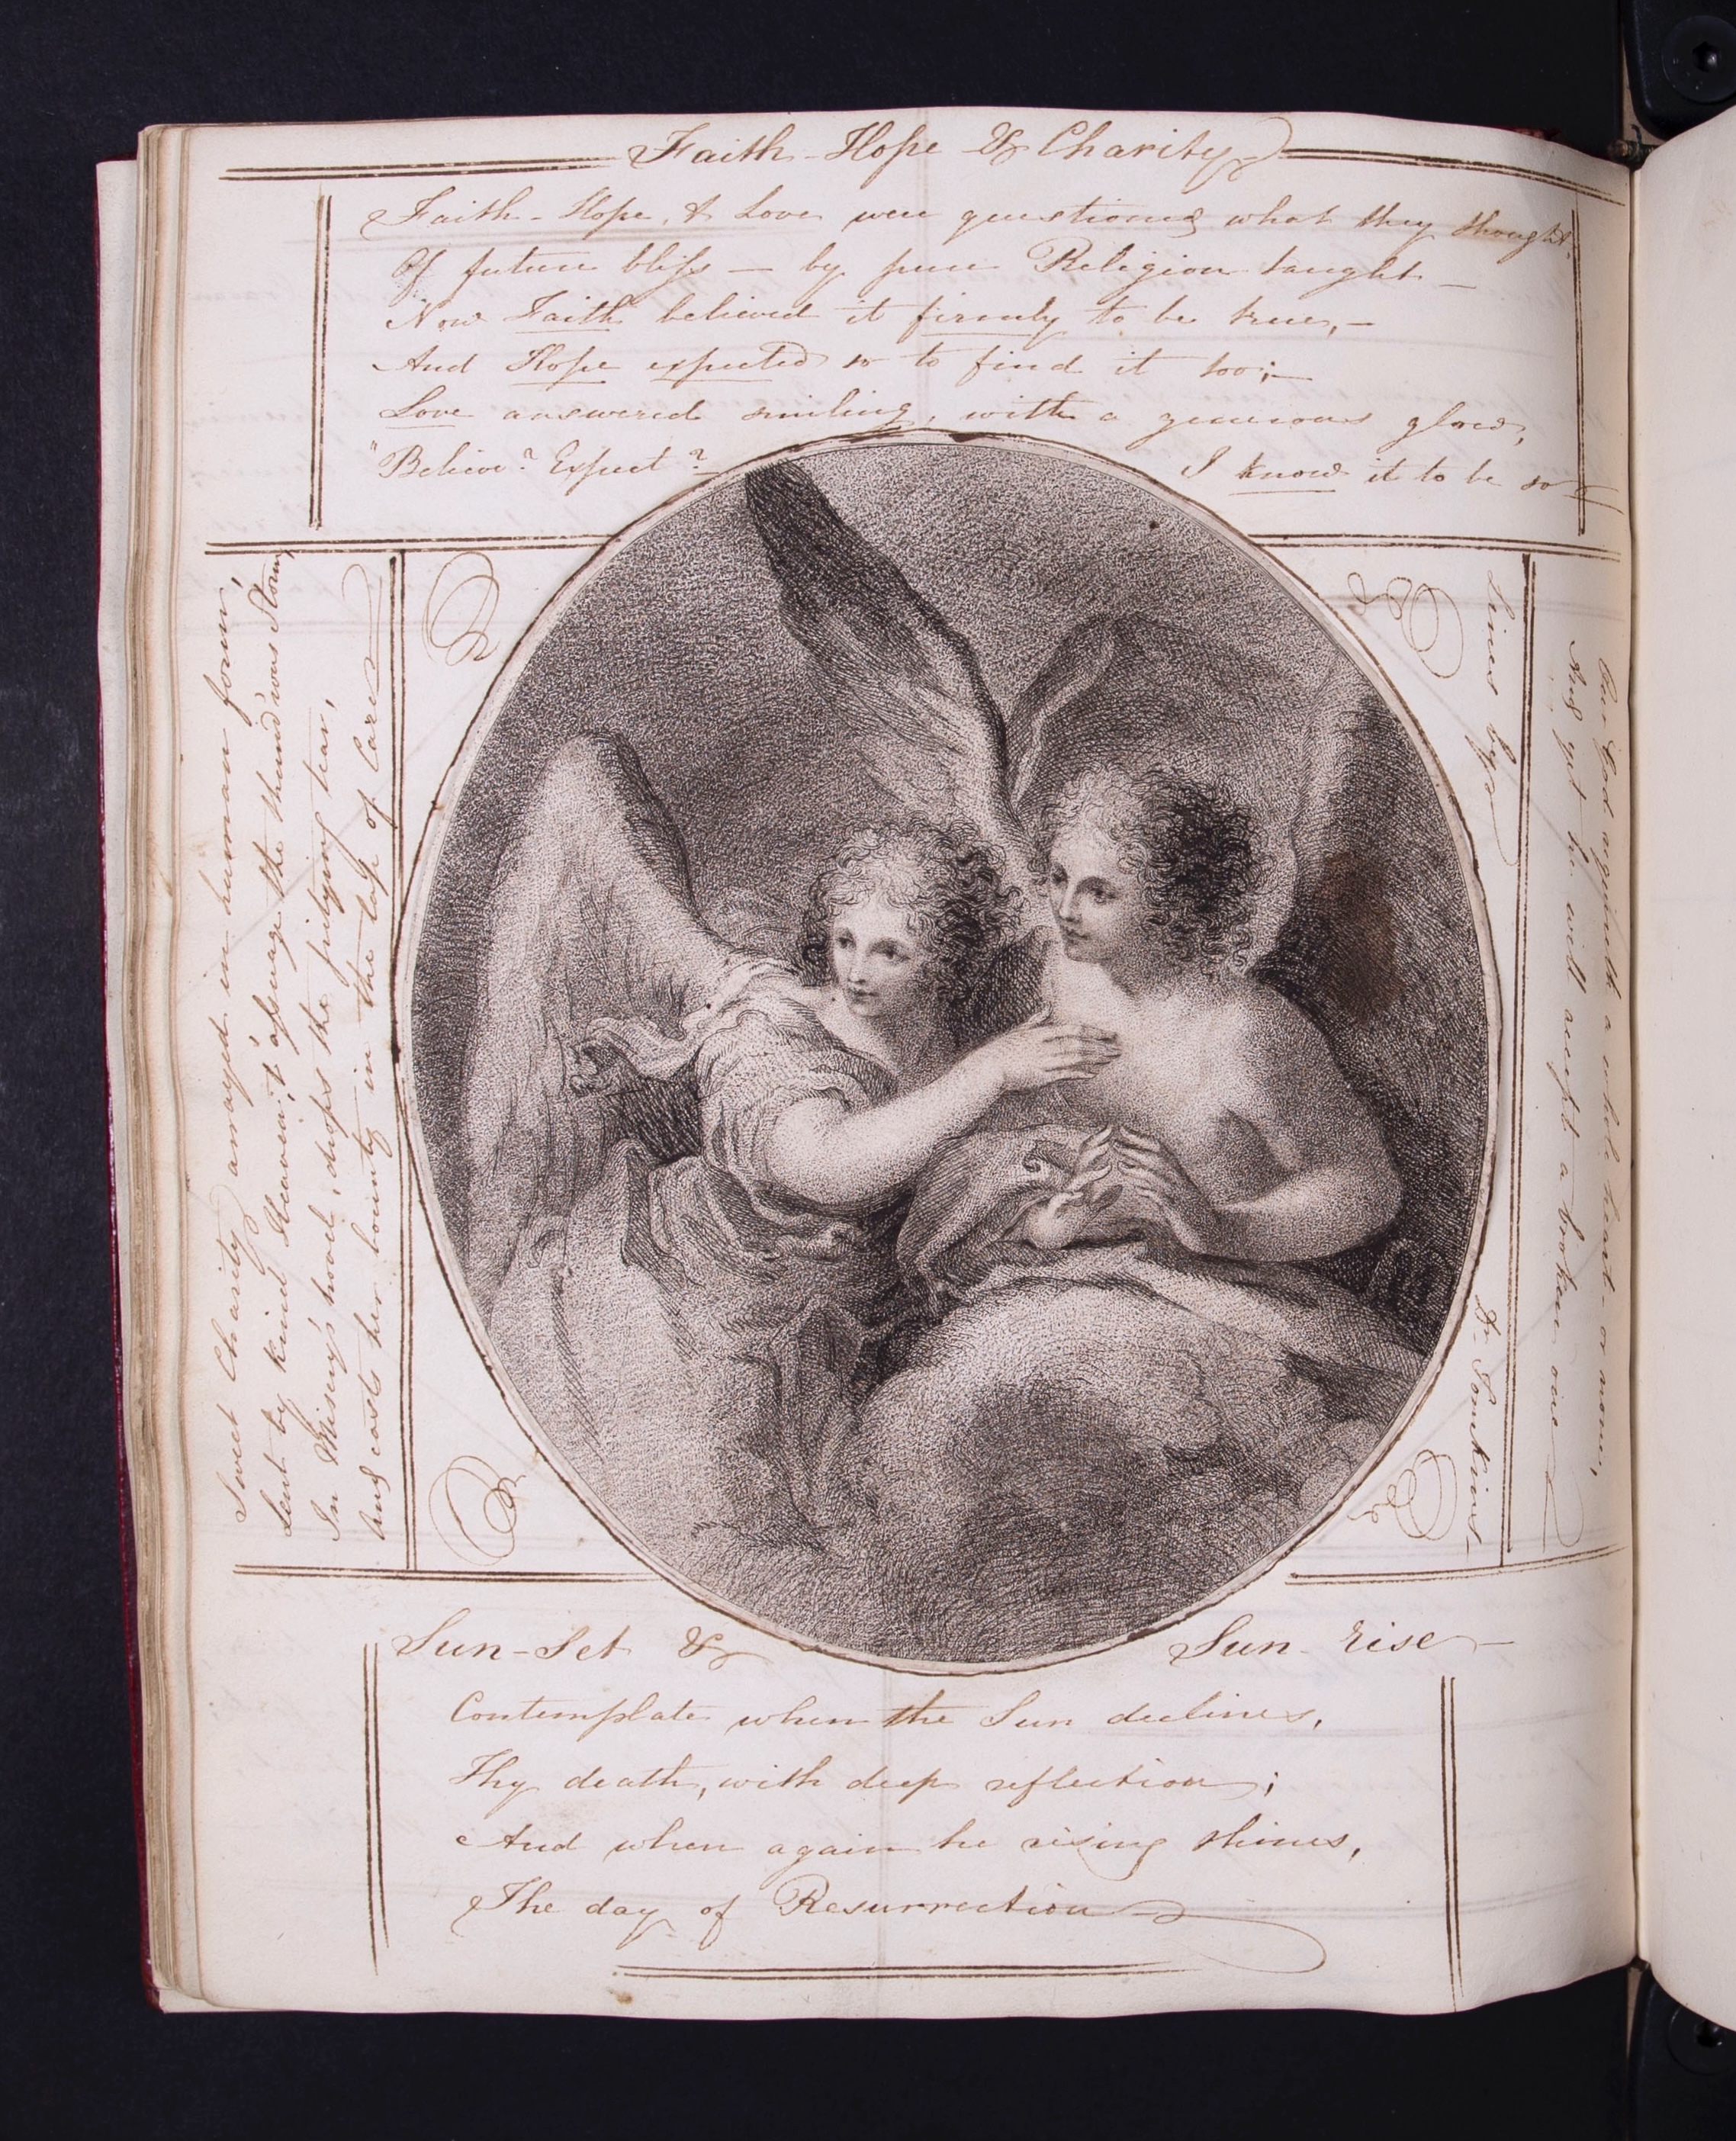 Faith - Hope & Charity
Faith - Hope, & Love were questioned what they thought
Of future bliss — by pure Religion taught —
Now Faith believed it firmly to be true, —
And Hope expected so to find it too; —
Love answered smiling, with a generous glow,
"Believe? Expect? I know it to be so
Sweet Charity arrayed in human form,
Sent by kind Heaven t' assuage the thund'rous Storm,
In Misery's hovel, drops the pitying tear,
And casts her bounty in the lap of Care
Lines by
D. Tomkins
Our God requireth a whole heart - or none,
And yet he will accept a broken one
Sun-Set & Sun-rise —
Contemplate when the Sun declines,
Thy death, with deep reflection;
And when again he rising shines,
The day of Resurrection